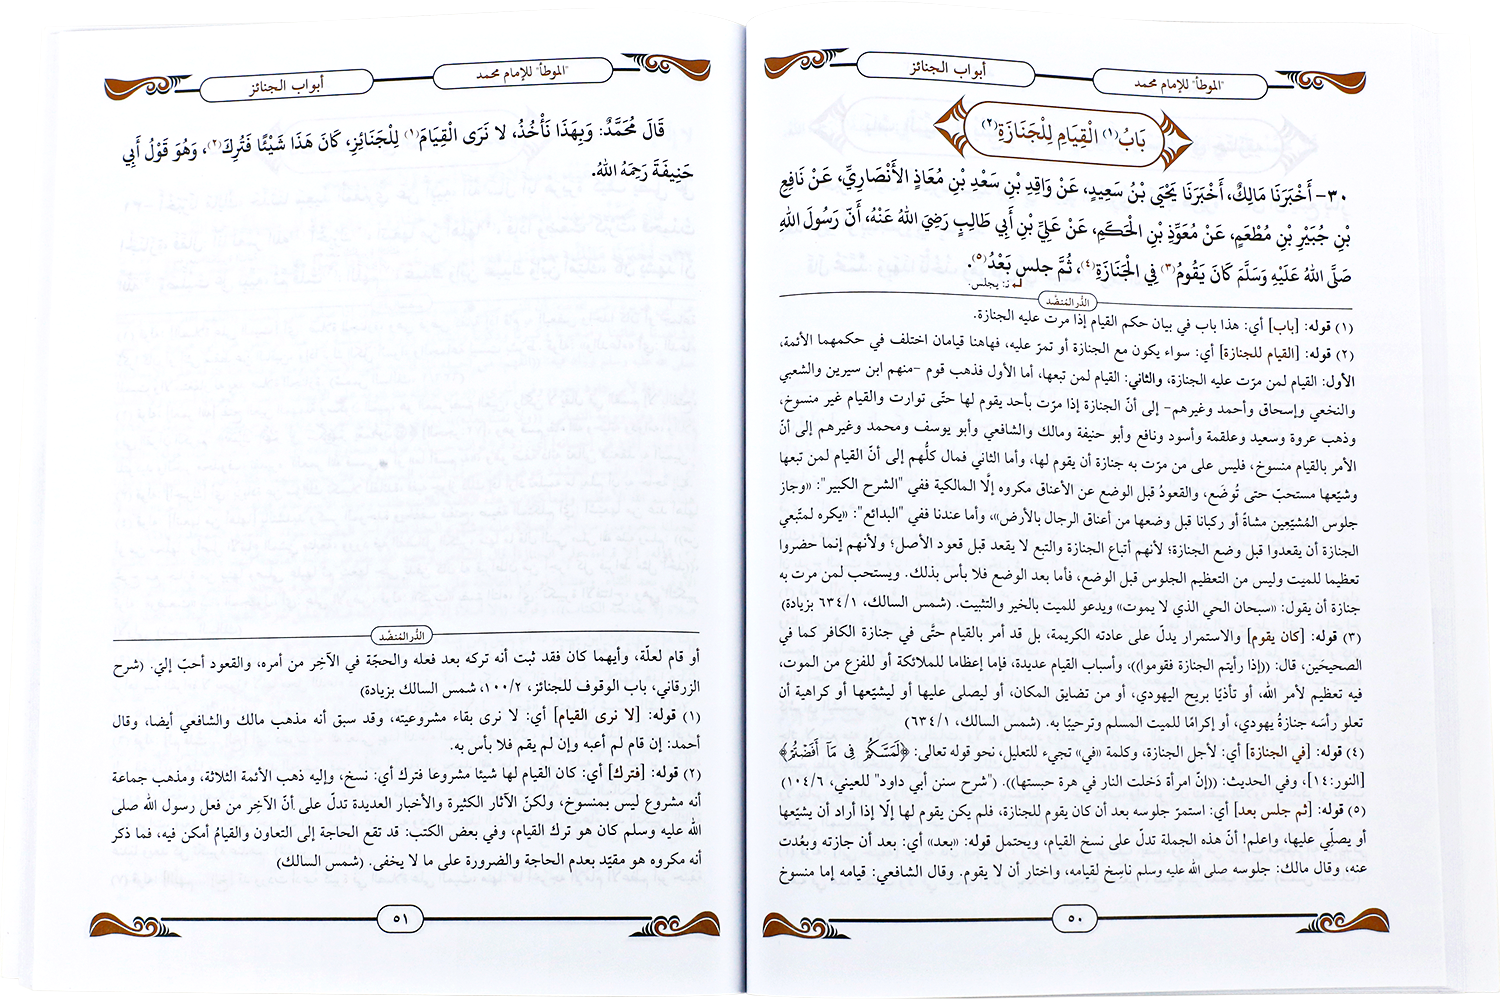 أبواب الجنائز
"الموطأ" للإمام محمد
بَابُ (١) الْقِيَامِ لِلْجَنَازَةِ (٢)
٣٠- أَخْبَرَنَا مَالِكٌ، أَخْبَرَنَا يَحْيَى بْنُ سَعِيدٍ، عَنْ وَاقِدِ بْنِ سَعْدِ بْنِ مُعَاذٍ الأَنْصَارِيِّ، عَنْ نَافِعِ
بْنِ جُبَيْرِ بْنِ مُطْعَمٍ، عَنْ مُعَوِّذِ بْنِ الْحَكَمِ، عَنْ عَلِيِّ بْنِ أَبِي طَالِبٍ رَضِيَ اللهُ عَنْهُ، أَنّ رَسُولَ اللهِ
صَلَّى اللهُ عَلَيْهِ وَسَلَّمَ كَانَ يَقُومُ (٣) فِي الْجَنَازَةِ (٤)، ثُمَّ جلس بَعْدُ (٥).
ز: يجلس.
الدُّر المُنضَّد
(١) قوله: [باب] أي: هذا باب في بيان حكم القيام إذا مرت عليه الجنازة.
(٢) قوله: [القيام للجنازة] أي: سواء يكون مع الجنازة أو تمرّ عليه، فهاهنا قيامان اختلف في حكمهما الأئمة،
الأول: القيام لمن مرّت عليه الجنازة، والثاني: القيام لمن تبعها، أما الأول فذهب قوم -منهم ابن سيرين والشعبي
والنخعي وإسحاق وأحمد وغيرهم- إلى أنّ الجنازة إذا مرّت بأحد يقوم لها حتّى توارت والقيام غير منسوخ،
وذهب عروة وسعيد وعلقمة وأسود ونافع وأبو حنيفة ومالك والشافعي وأبو يوسف ومحمد وغيرهم إلى أنّ
الأمر بالقيام منسوخ، فليس على من مرّت به جنازة أن يقوم لها، وأما الثاني فمال كلُّهم إلى أنّ القيام لمن تبعها
وشيّعها مستحبّ حتى تُوضَع، والقعودُ قبل الوضع عن الأعناق مكروه إلّا المالكية ففي "الشرح الكبير": «وجاز
جلوس المُشيّعِين مشاةً أو ركبانا قبل وضعها من أعناق الرجال بالأرض»، وأما عندنا ففي "البدائع": «يكره لمتّبعي
الجنازة أن يقعدوا قبل وضع الجنازة؛ لأنهم أتباع الجنازة والتبع لا يقعد قبل قعود الأصل؛ ولأنهم إنما حضروا
تعظيما للميت وليس من التعظيم الجلوس قبل الوضع، فأما بعد الوضع فلا بأس بذلك. ويستحب لمن مرت به
جنازة أن يقول: «سبحان الحي الذي لا يموت» ويدعو للميت بالخير والتثبيت. (شمس السالك، ٦٣٤/١ بزيادة)
(٣) قوله: [كان يقوم] والاستمرار يدلّ على عادته الكريمة، بل قد أمر بالقيام حتَّى في جنازة الكافر كما في
الصحيحَين، قال: ((إذا رأيتم الجنازة فقوموا))، وأسباب القيام عديدة، فإما إعظاما للملائكة أو للفزع من الموت،
فيه تعظيم لأمر الله، أو تأذيًا بريح اليهودي، أو من تضايق المكان، أو ليصلى عليها أو ليشيّعها أو كراهية أن
تعلو رأسَه جنازةُ يهودي، أو إكرامًا للميت المسلم وترحيبًا به. (شمس السالك، ٦٣٤/١)
(٤) قوله: [في الجنازة] أي: لأجل الجنازة، وكلمة «في» تجيء للتعليل، نحو قوله تعالى: ﴿لَمَسَّكُمْ فِي مَآ أَفَضْتُمْ﴾
[النور:١٤]، وفي الحديث: ((إنّ امرأة دَخلت النار في هرة حبستها)). ("شرح سنن أبي داود" للعيني، ١٠٤/٦)
(٥) قوله: [ثم جلس بعد] أي: استمرّ جلوسه بعد أن كان يقوم للجنازة، فلم يكن يقوم لها إلّا إذا أراد أن يشيّعها
أو يصلّي عليها، واعلم! أنّ هذه الجملة تدلّ على نسخ القيام، ويحتمل قوله: «بعد» أي: بعد أن جازته وبعُدت
عنه، وقال مالك: جلوسه صلى الله عليه وسلم ناسِخ لقيامه، واختار أن لا يقوم. وقال الشافعي: قيامه إما منسوخ
٥٠
"الموطأ" للإمام محمد
أبواب الجنائز
قَالَ مُحَمَّدٌ: وَبِهَذَا نَأْخُذُ، لا نَرَى الْقِيَامَ (١) لِلْجَنَائِزِ، كَانَ هَذَا شَيْئًا فَتُرِكَ (٢)، وَهُوَ قَوْلُ أَبِي
حَنِيفَةَ رَحِمَهُ اللهُ.
الدُّر المُنضَّد
أو قام لعلّة، وأيهما كان فقد ثبت أنه تركه بعد فعله والحجّة في الآخِر من أمره، والقعود أحبّ إليّ. (شرح
الزرقاني، باب الوقوف للجنائز، ١٠٠/٢، شمس السالك بزيادة)
(١) قوله: [لا نرى القيام] أي: لا نرى بقاء مشروعيته، وقد سبق أنه مذهب مالك والشافعي أيضا، وقال
أحمد: إن قام لم أعبه وإن لم يقم فلا بأس به.
(٢) قوله: [فترك] أي: كان القيام لها شيئا مشروعا فترك أي: نسخ، وإليه ذهب الأئمة الثلاثة، ومذهب جماعة
أنه مشروع ليس بمنسوخ، ولكنّ الآثار الكثيرة والأخبار العديدة تدلّ على أنّ الآخِر من فعل رسول الله صلى
الله عليه وسلم كان هو ترك القيام، وفي بعض الكتب: قد تقع الحاجة إلى التعاون والقيامُ أمكن فيه، فما ذكر
أنه مكروه هو مقيّد بعدم الحاجة والضرورة على ما لا يخفى. (شمس السالك)
٥١